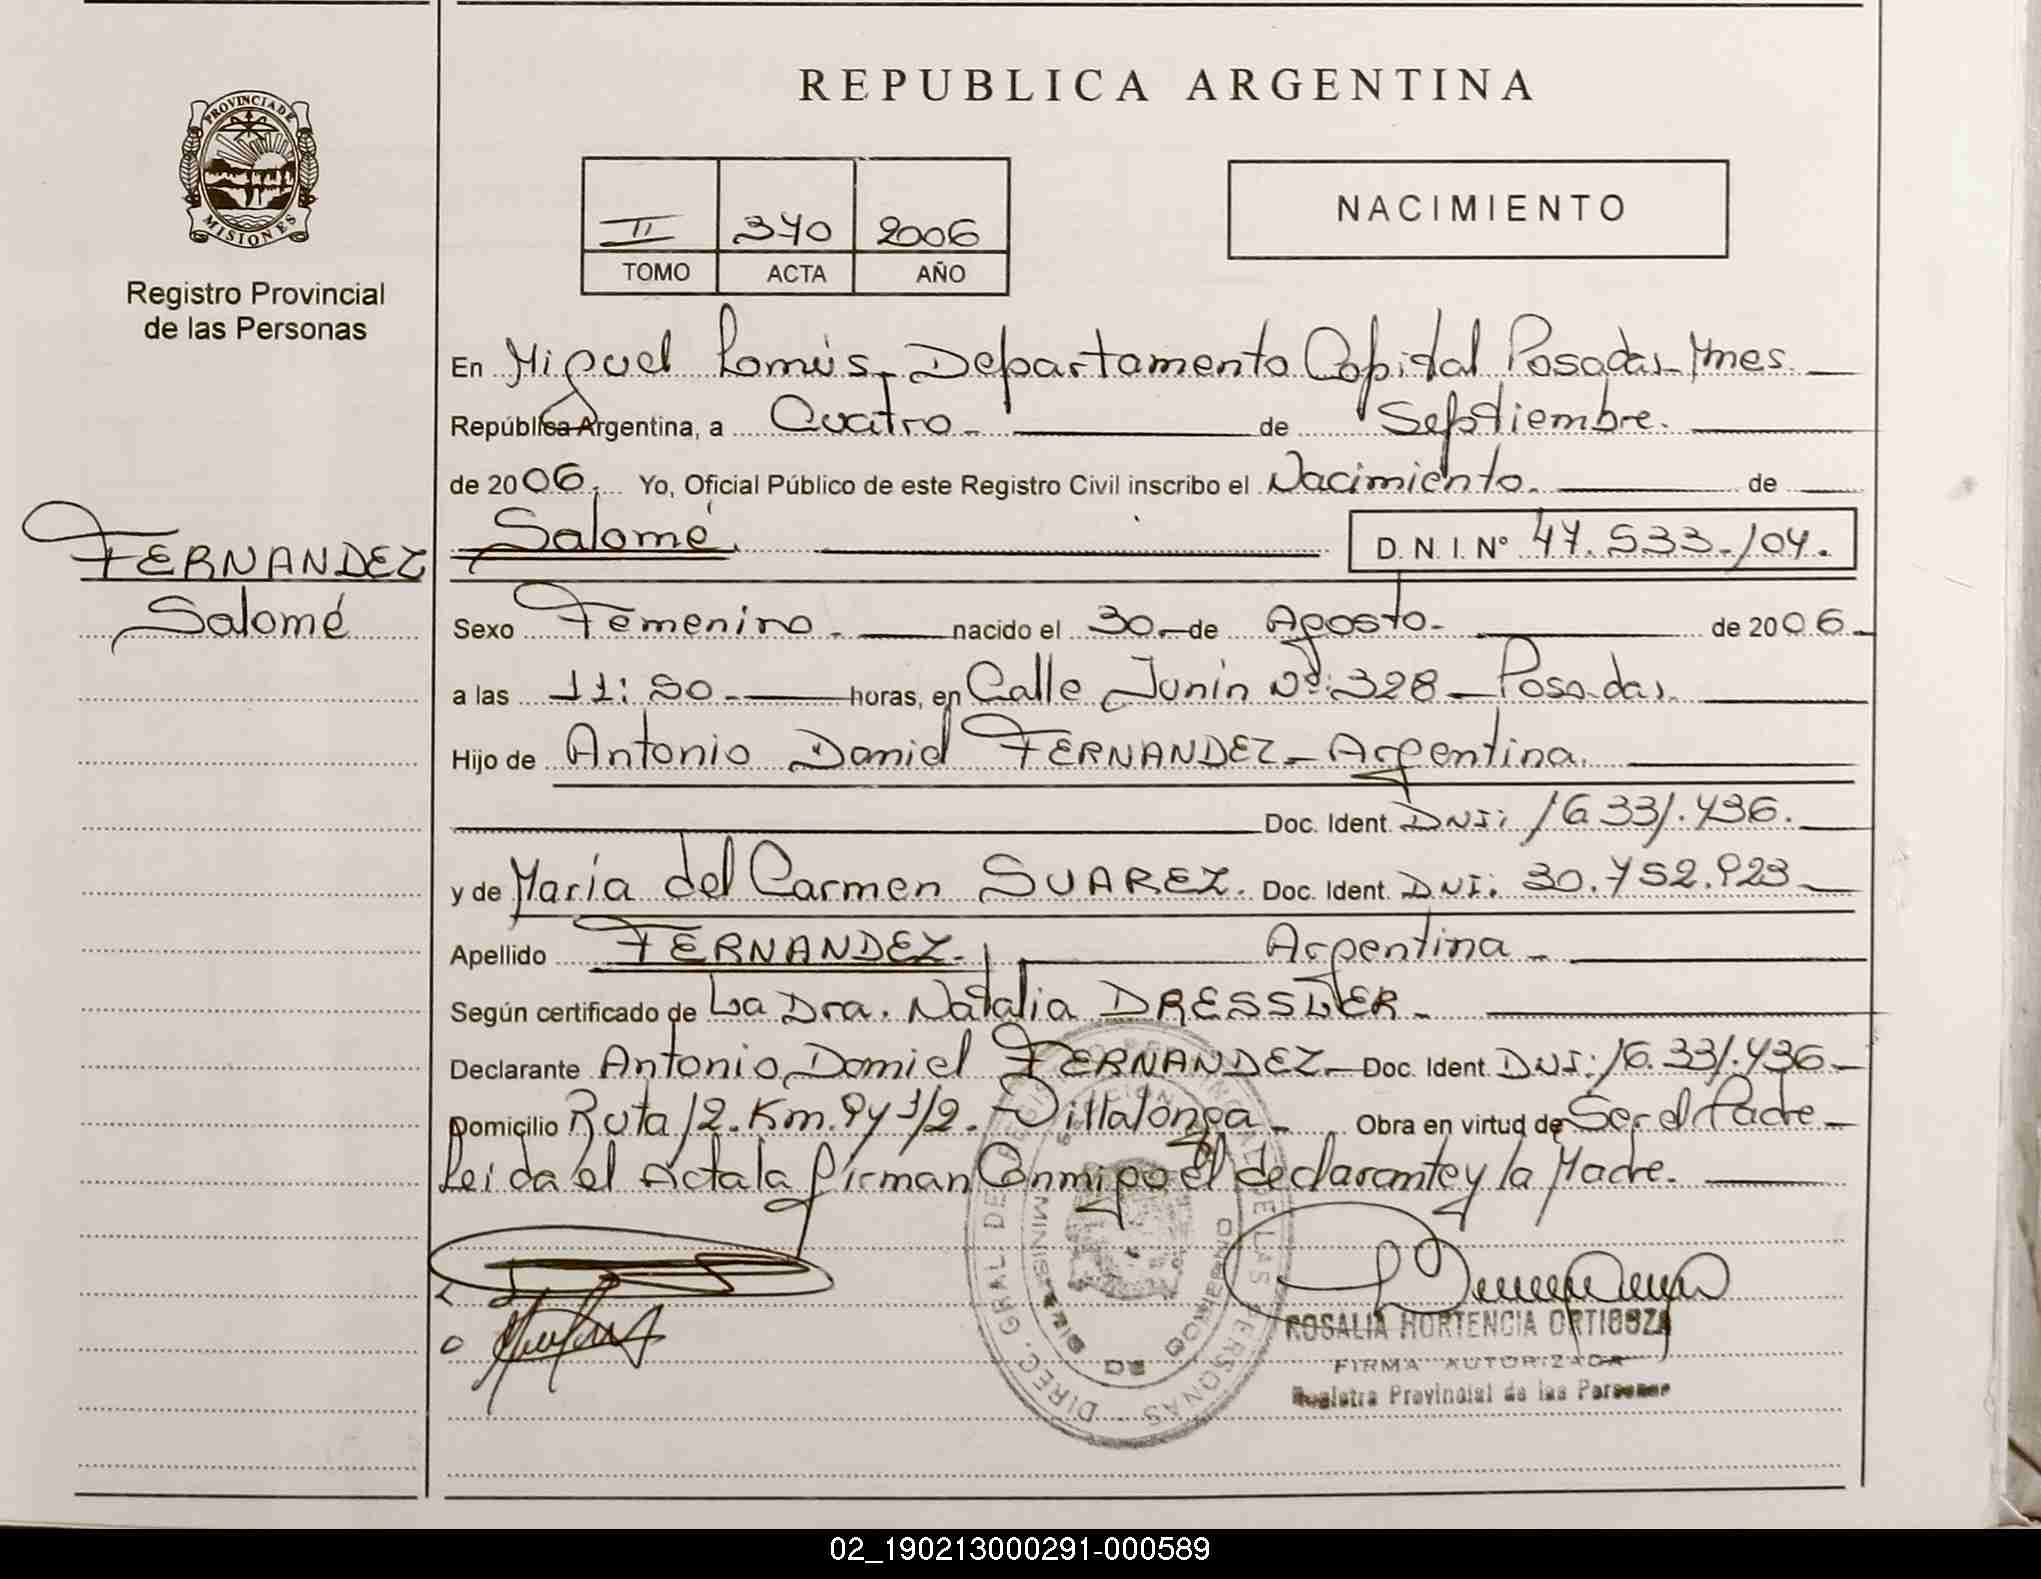 PROVINCIA DE
MISIONES
Registro Provincial
de las Personas
FERNANDEZ
Salomé
REPUBLICA ARGENTINA
II 370 2006
TOMO ACTA AÑO
NACIMIENTO
En Miguel Lanús, Departamento Capital Posadas Mnes.
República Argentina, a Cuatro de Septiembre.
de 2006. Yo, Oficial Público de este Registro Civil inscribo el Nacimiento. de
Salomé. D.N.I.Nº 47.533.104.
Sexo Femenino. nacido el 30. de Agosto. de 2006.
a las 11:50 horas, en Calle Junín Nº: 328 Posadas.
Hijo de Antonio Daniel FERNANDEZ Argentina.
Doc. Ident. DNI: 16.331.736.
y de María del Carmen SUAREZ. Doc. Ident. DNI: 30.752.923
Apellido FERNANDEZ. Argentina
Según certificado de La Dra. Natalia DRESSLER
Declarante Antonio Daniel FERNANDEZ Doc. Ident. DNI: 16.331.736
Domicilio Ruta 12. Km. 9 y 1/2. Villalonga Obra en virtud de Ser el Padre
Leida el Acta la firman Conmigo el declarante y la Madre.
DIREC. GRAL DE LAS PERSONAS
ROSALIA HORTENCIA ORTIGOZA
FIRMA AUTORIZADA
Registro Provincial de las Personas
02_190213000291-000589